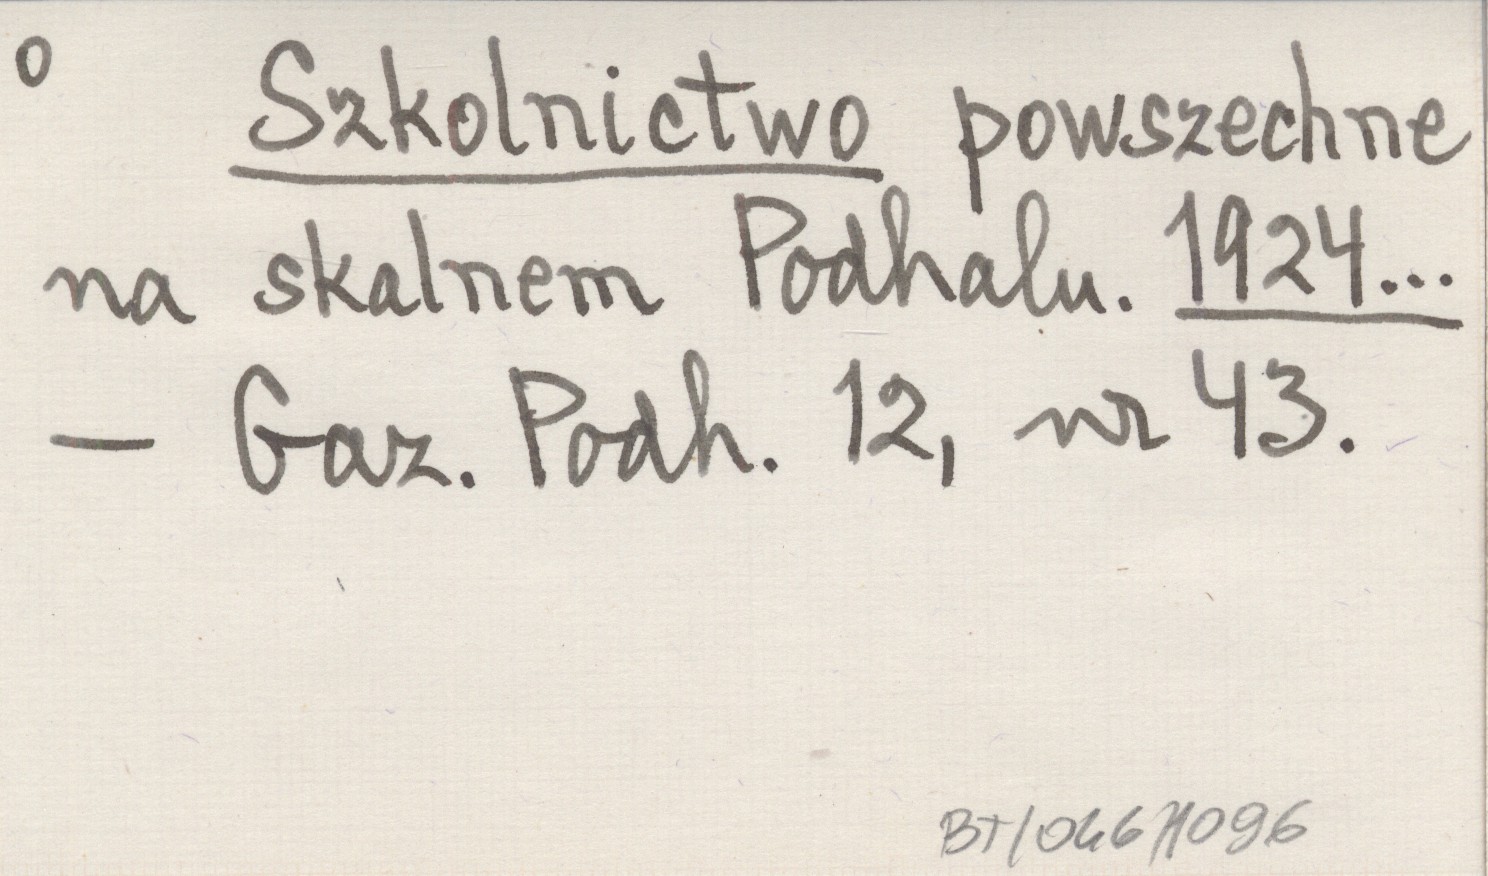 o Szkolnictwo powszechne
na skalnem Podhalu. 1924...
— Gaz. Podh. 12, nr 43.
BT/046/1096